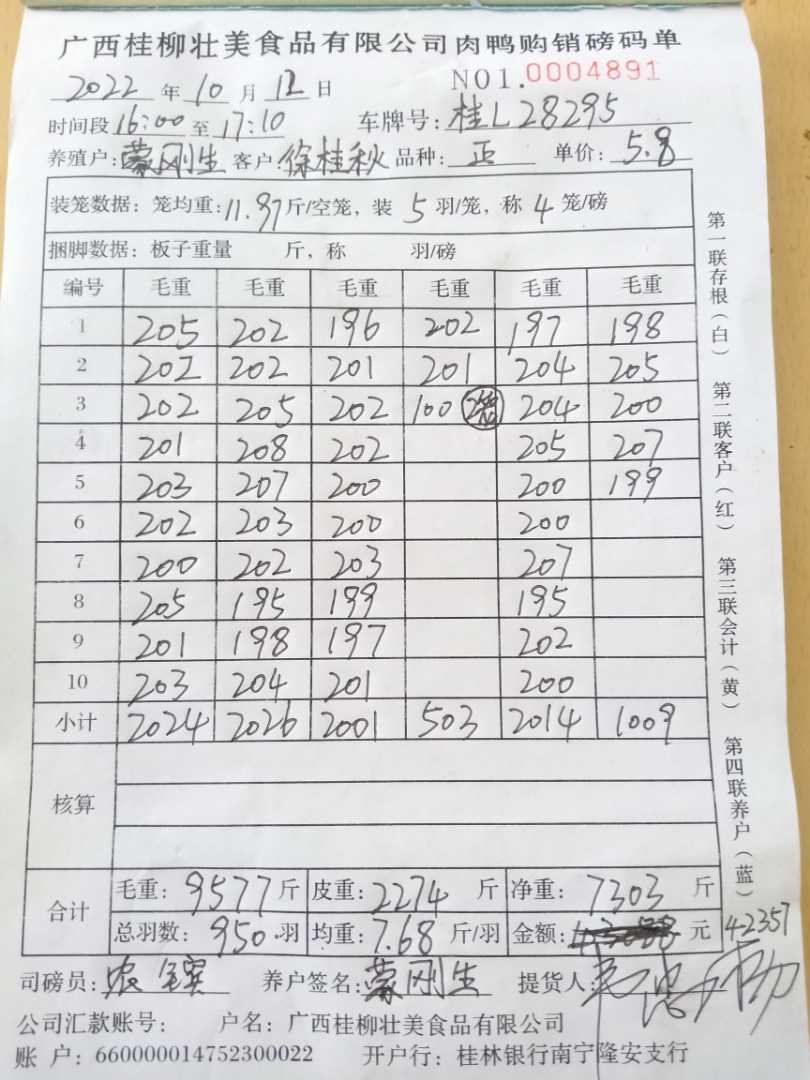 广西桂柳壮美食品有限公司肉鸭购销磅码单
2022 年 10 月 12 日 NO1.0004891
时间段 16:00 至 17:10 车牌号: 桂L28295
养殖户: 蒙刚生 客户: 徐桂秋 品种: 正 单价: 5.8
装笼数据: 笼均重: 11.97 斤/空笼, 装 5 羽/笼, 称 4 笼/磅
捆脚数据: 板子重量 斤, 称 羽/磅
编号 毛重 毛重 毛重 毛重 毛重 毛重
1 205 202 196 202 197 198
2 202 202 201 201 204 205
3 202 205 202 100 204 200
4 201 208 202 205 207
5 203 207 200 200 199
6 202 203 200 200
7 200 202 203 207
8 205 195 199 195
9 201 198 197 202
10 203 204 201 200
小计 2024 2026 2001 503 2014 1009
核算
合计 毛重: 9577 斤 皮重: 2274 斤 净重: 7303 斤
总羽数: 950 羽 均重: 7.68 斤/羽 金额: 元 42357
司磅员: 农宝宾 养户签名: 蒙刚生 提货人:
公司汇款账号: 户名: 广西桂柳壮美食品有限公司
账 户: 660000014752300022 开户行: 桂林银行南宁隆安支行
第一联存根(白) 第二联客户(红) 第三联会计(黄) 第四联养户(蓝)